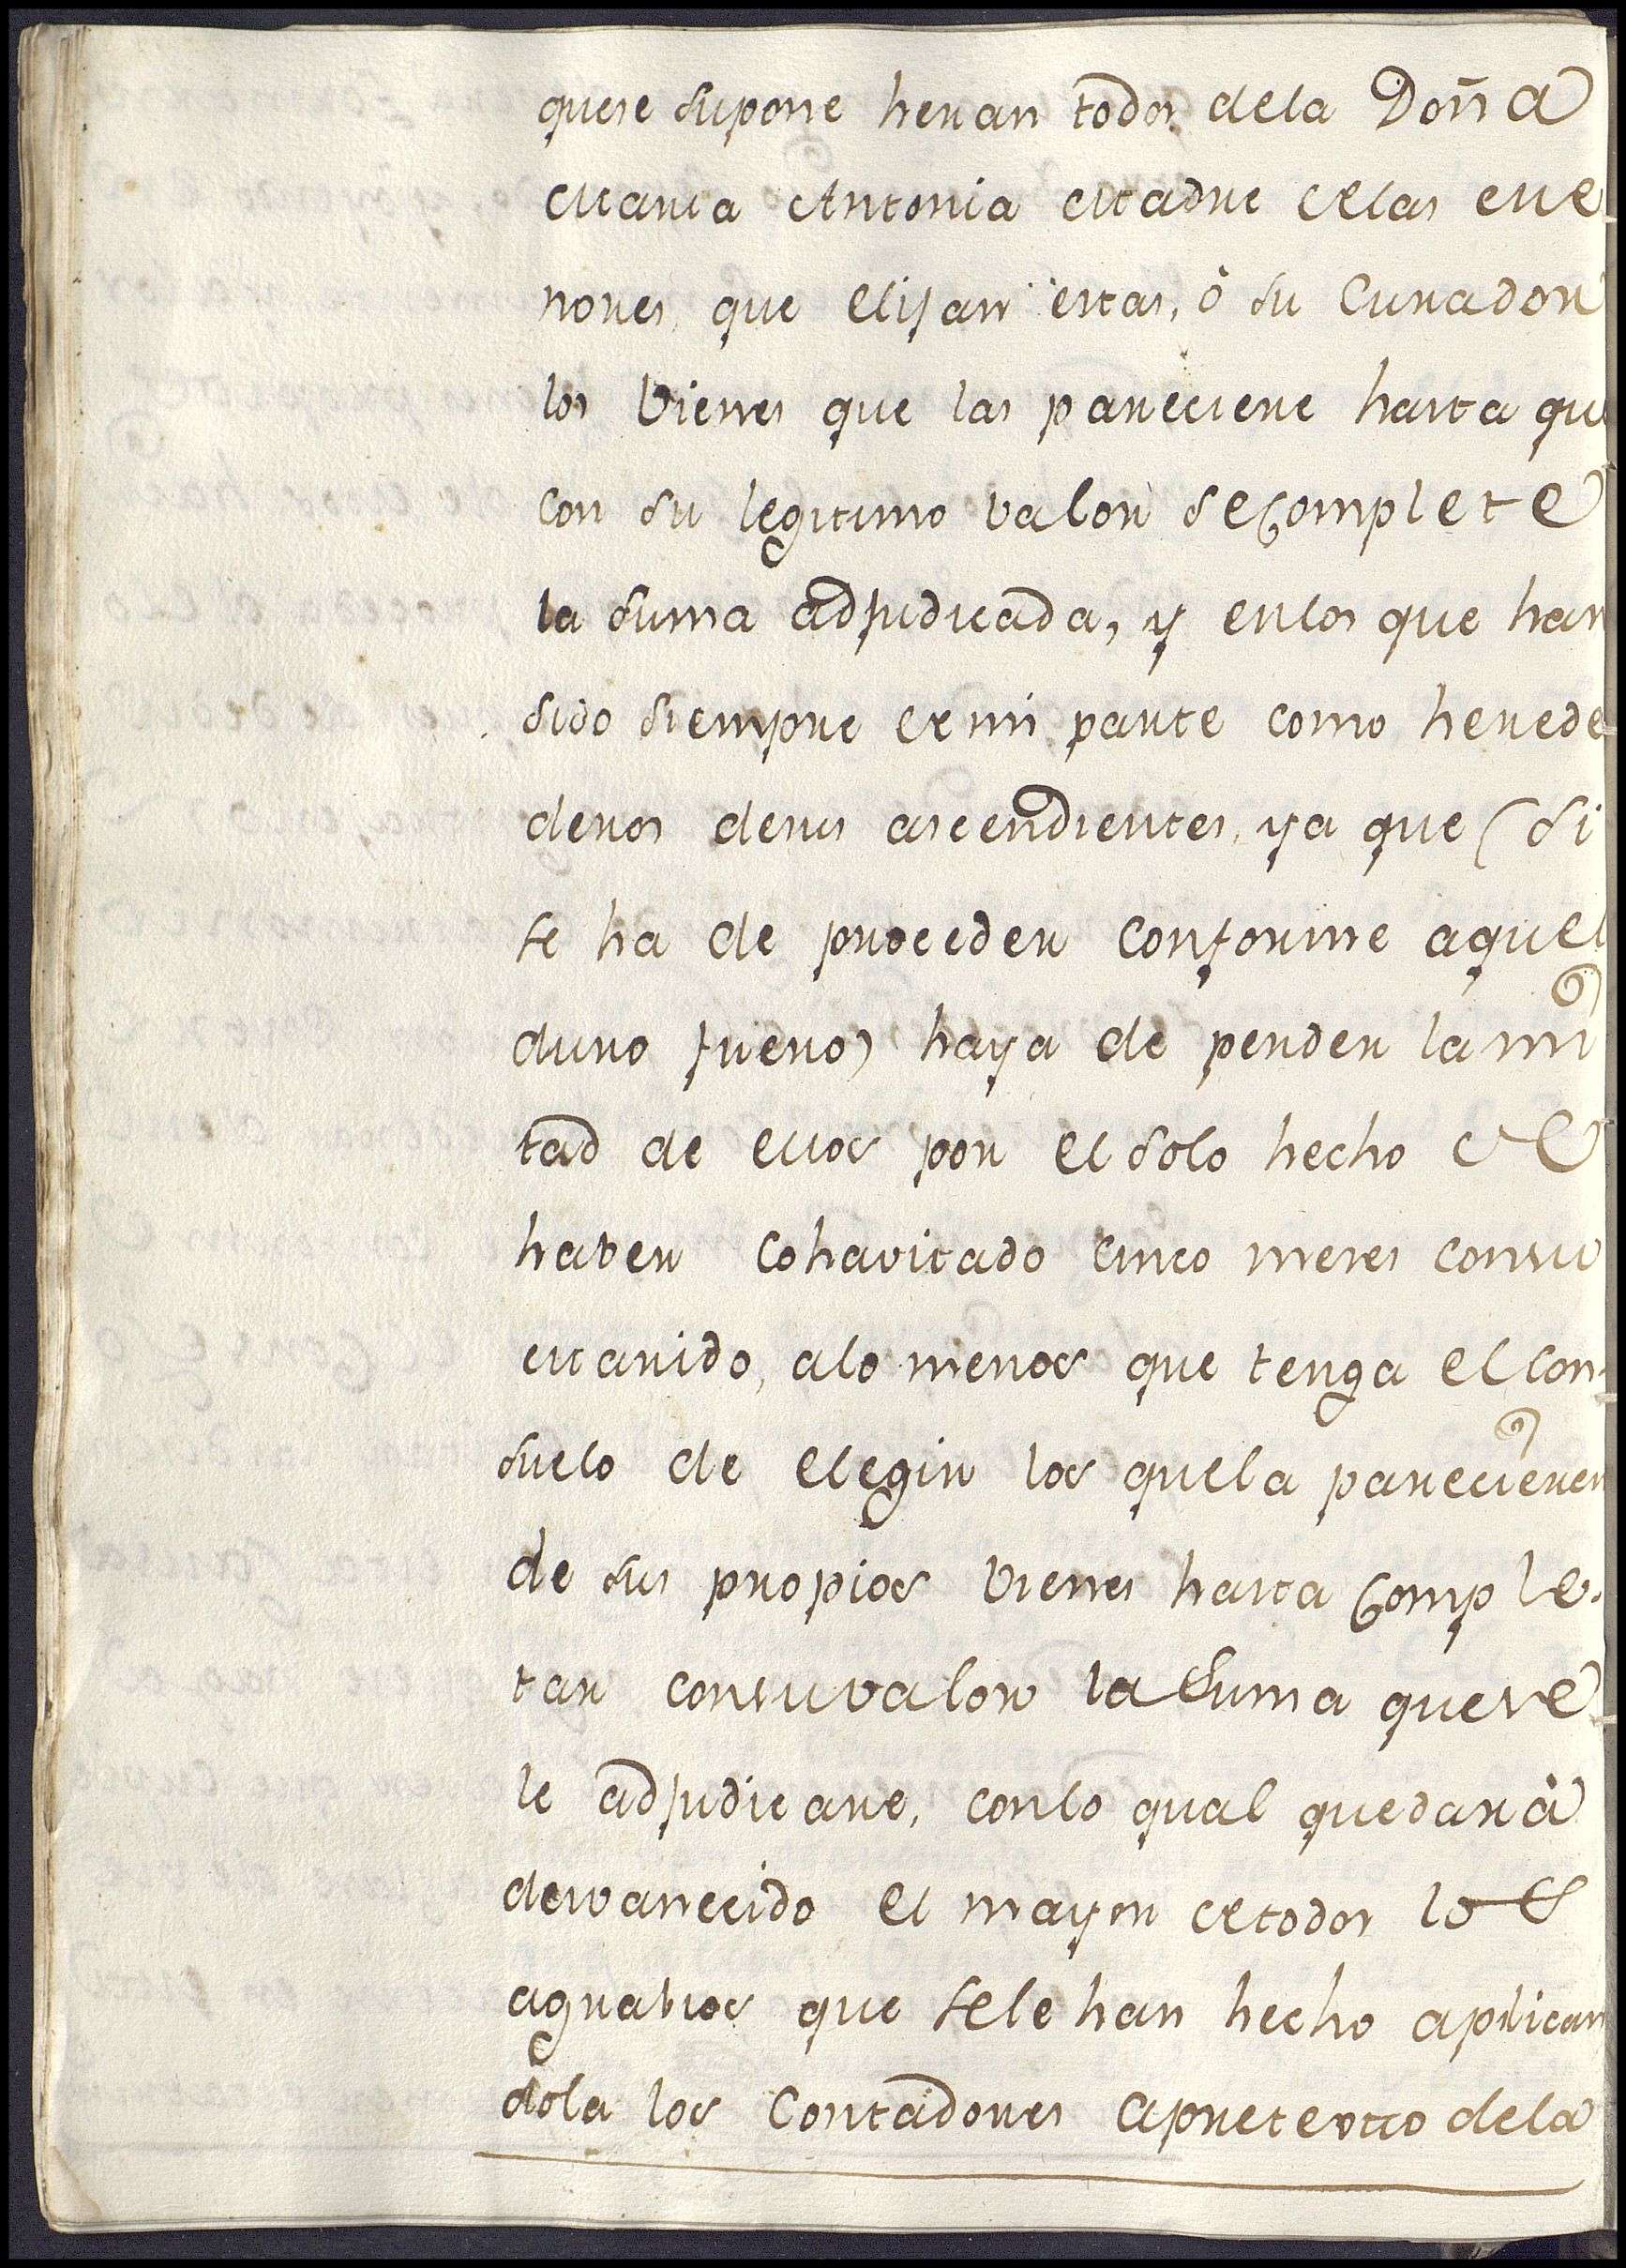 que se supone heran todos de la Doña
Maria Antonia Madre de las Me
nores, que elijan estas, ó su Curador
los vienes que las pareciere hasta que
con su legitimo valor se complete
la suma adjudicada, y en los que han
sido siempre de mi parte como herede
deros de sus ascendientes, ya que (si
se ha de proceder conforme aquel
duro fuero) haya de perder la mi
tad de ellos por el solo hecho de
haver cohavitado cinco meses con su
Marido, alo menos que tenga el con-
suelo de elegir los que la parecieren
de sus propios vienes hasta comple-
tar con su valor la suma que se
le adjudicare, con lo qual quedará
desvanecido el mayor de todos los
agravios que se le han hecho aplican
dola los Contadores apretexto de la